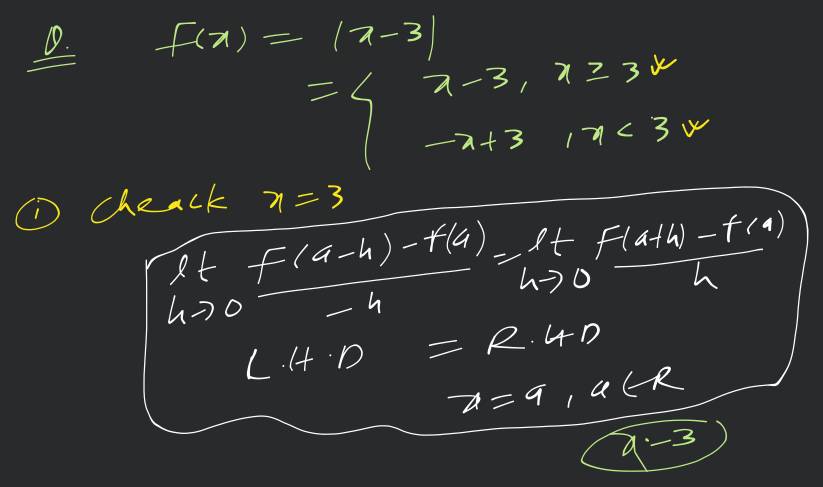 Q. f(x) = |x-3|
= { x-3, x ≥ 3
-x+3 , x < 3
① cheack x=3
lt h→0 f(a-h)-f(a) / -h = lt h→0 f(a+h)-f(a) / h
L.H.D = R.H.D
x=a, a∈R
x=3